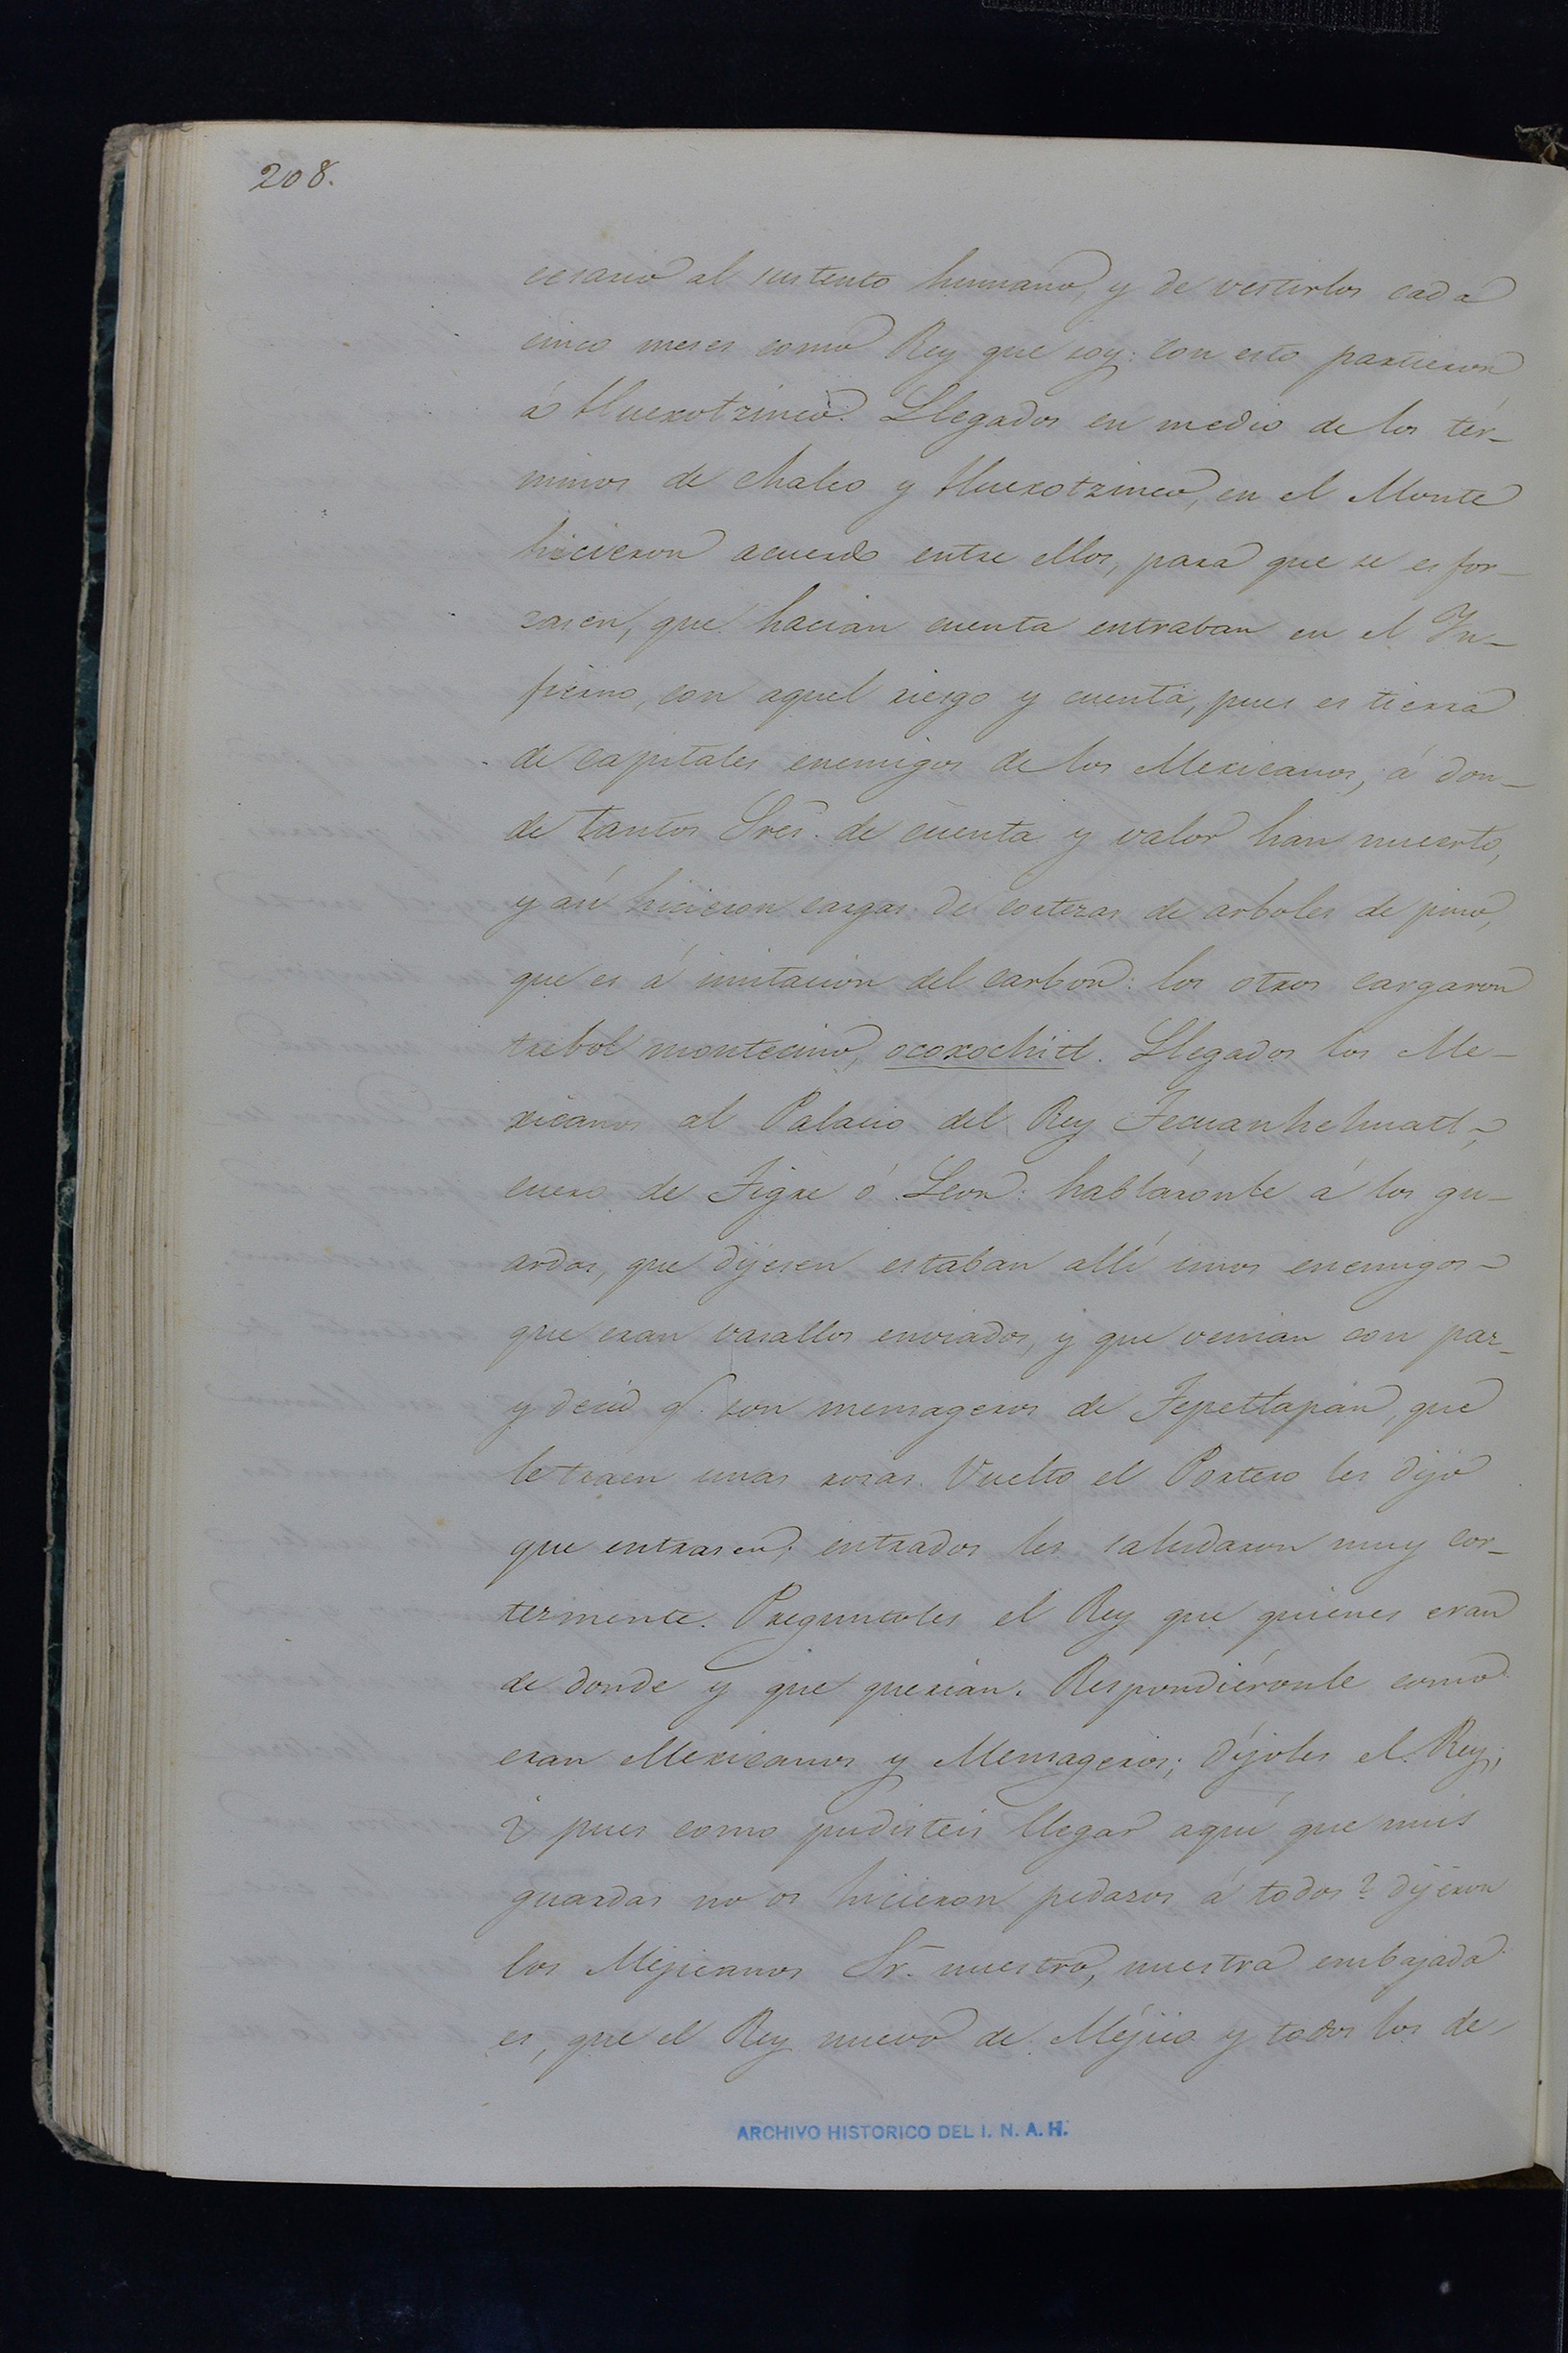 208.
cesario al sustento humano, y de vestirlos cada
cinco meses como Rey que soy: con esto partieron
á Huexotzinco. Llegados en medio de los tér-
minos de Chalco y Huexotzinco, en el Monte
hicieron acuerdo entre ellos, para que se esfor-
zasen, que hacian cuenta entraban en el In-
fierno, con aquel riesgo y cuenta, pues es tierra
de capitales enemigos de los Mexicanos, á don-
de tantos Sres. de cuenta y valor han muerto,
y así hicieron cargas de cortezas de arboles de pino,
que es á imitacion del carbon: los otros cargaron
trebol montecino, ocoxochitl. Llegados los Me-
xicanos al Palacio del Rey Tecuanhehuatl,
cuero de Tigre ó Leon: habláronle á los gu-
ardas, que dijesen estaban allí unos enemigos
que eran vasallos enviados, y que venian con paz
y decid q. son mensageros de Tepetlapan, que
le traen unas rosas. Vuelto el Portero les dijo
que entrasen; entrados les saludaron muy cor-
tezmente. Preguntoles el Rey que quienes eran
de donde y que querian. Respondiéronle como
eran Mexicanos y Mensageros; díjoles el Rey;
¿ pues como pudisteis llegar aquí que mis
guardas no os hicieron pedazos á todos? dijeron
los Mejicanos Sr. nuestro, nuestra embajada
es, que el Rey nuevo de Méjico y todos los de
ARCHIVO HISTORICO DEL I. N. A. H.